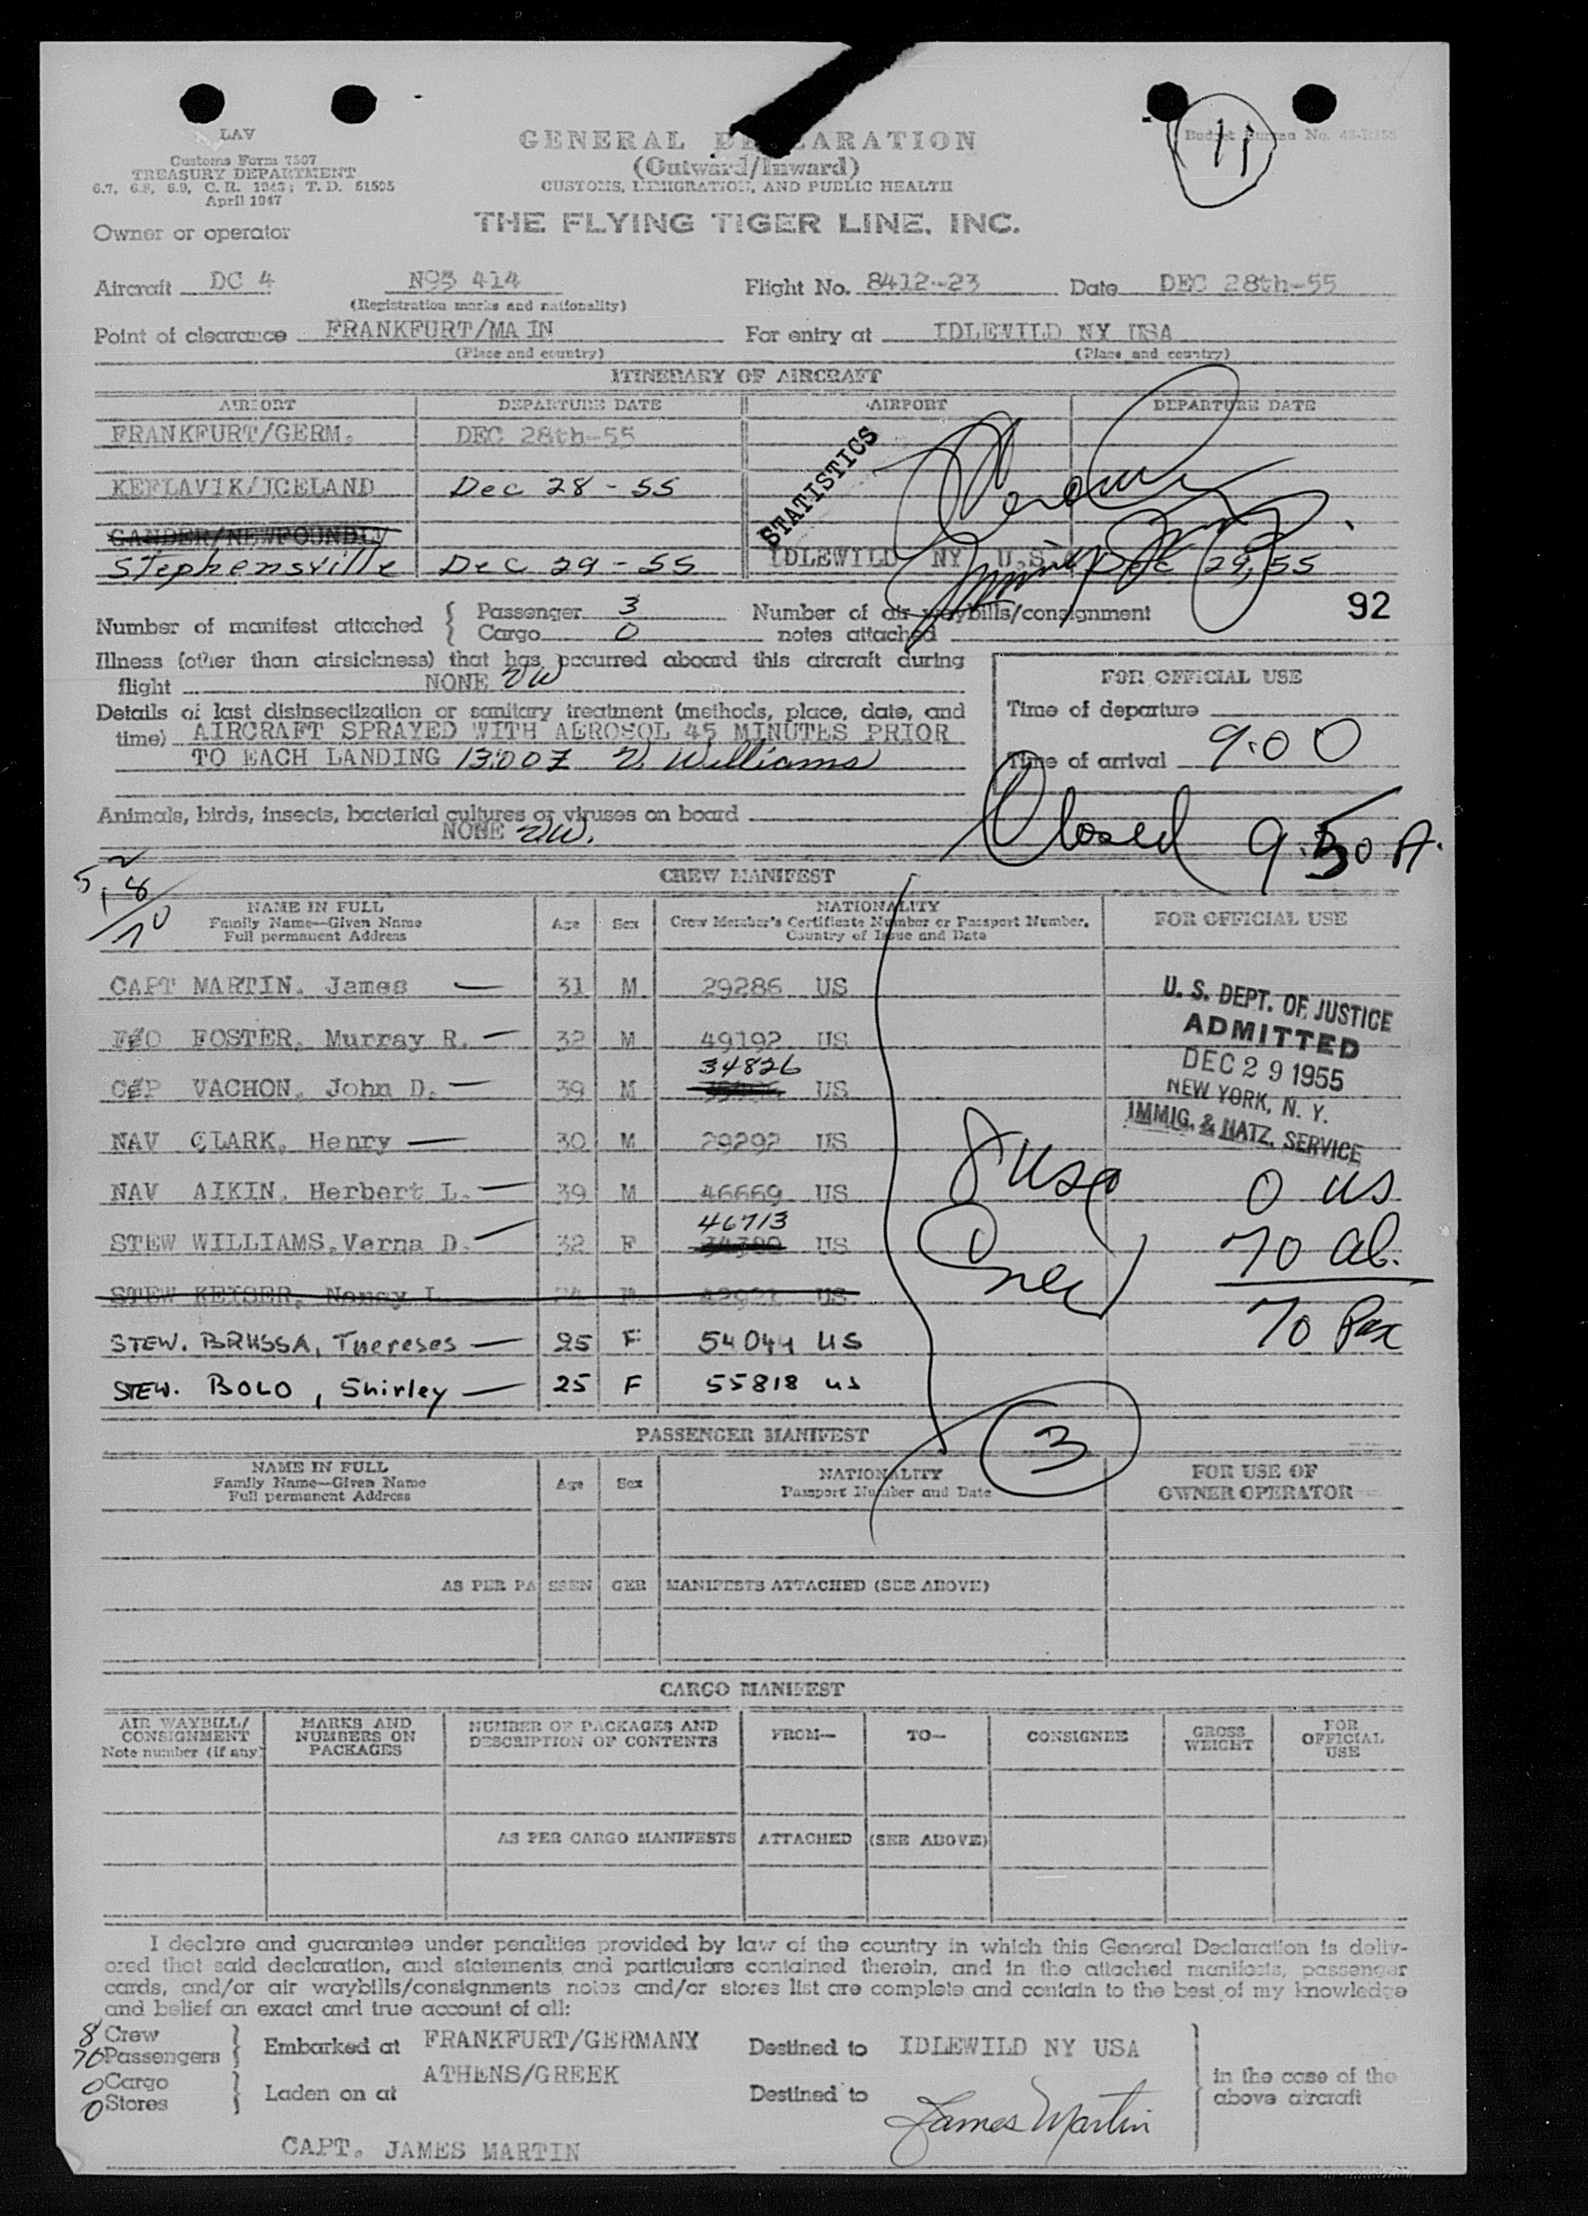 LAV
Customs Form 7507
TREASURY DEPARTMENT
6.7, 6.8, 6.9, C. R. 1943; T. D. 51505
April 1947
GENERAL DECLARATION
(Outward/Inward)
CUSTOMS, IMMIGRATION, AND PUBLIC HEALTH
11
Budget Bureau No.
Owner or operator
THE FLYING TIGER LINE, INC.
Aircraft DC 4 N95 414 Flight No. 8412-23 Date DEC 28th-55
(Registration marks and nationality)
Point of clearance FRANKFURT/MA IN For entry at IDLEWILD NY USA
(Place and country) (Place and country)
ITINERARY OF AIRCRAFT
AIRPORT DEPARTURE DATE AIRPORT DEPARTURE DATE
FRANKFURT/GERM. DEC 28th-55
STATISTICS
KEFLAVIK/ICELAND Dec 28-55
GANDER/NEWFOUNDLV
Stephensville Dec 29-55 IDLEWILD NY U.S. Dec 29, 55
92
Number of manifest attached { Passenger 3 Number of air waybills/consignment
Cargo 0 notes attached
Illness (other than airsickness) that has occurred aboard this aircraft during
flight NONE VW
FOR OFFICIAL USE
Details of last disinsectization or sanitary treatment (methods, place, date, and
time) AIRCRAFT SPRAYED WITH AEROSOL 45 MINUTES PRIOR
TO EACH LANDING 13:00Z V. Williams
Time of departure
Time of arrival 9:00
Closed 9.50 A.
Animals, birds, insects, bacterial cultures or viruses on board
NONE VW.
CREW MANIFEST
NAME IN FULL
Family Name—Given Name
Full permanent Address
Age Sex
NATIONALITY
Crew Member's Certificate Number or Passport Number,
Country of Issue and Date
FOR OFFICIAL USE
CAPT MARTIN. James — 31 M 29286 US
F/O FOSTER, Murray R. — 32 M 49192 US
34826
C/P VACHON, John D. — 39 M US
NAV CLARK, Henry — 30 M 29292 US
NAV AIKIN, Herbert L. — 39 M 46669 US
46713
STEW WILLIAMS, Verna D. — 32 F 34380 US
STEW KEISER, Nancy L 24 F. 42921 US
STEW. BRUSSA, Thereses — 25 F 54044 US
STEW. BOLO, Shirley — 25 F 55818 us
U. S. DEPT. OF JUSTICE
ADMITTED
DEC 29 1955
NEW YORK, N. Y.
IMMIG. & NATZ. SERVICE
8 usa
0 us
70 al.
70 Pax
3
PASSENGER MANIFEST
NAME IN FULL
Family Name—Given Name
Full permanent Address
Age Sex
NATIONALITY
Passport Number and Date
FOR USE OF
OWNER OPERATOR
AS PER PASSENGER MANIFESTS ATTACHED (SEE ABOVE)
CARGO MANIFEST
AIR WAYBILL/
CONSIGNMENT
Note number (if any)
MARKS AND
NUMBERS ON
PACKAGES
NUMBER OF PACKAGES AND
DESCRIPTION OF CONTENTS
FROM—
TO—
CONSIGNEE
GROSS
WEIGHT
FOR
OFFICIAL
USE
AS PER CARGO MANIFESTS ATTACHED (SEE ABOVE)
I declare and guarantee under penalties provided by law of the country in which this General Declaration is deliv-
ered that said declaration, and statements and particulars contained therein, and in the attached manifests, passenger
cards, and/or air waybills/consignments notes and/or stores list are complete and contain to the best of my knowledge
and belief an exact and true account of all:
8 Crew
70 Passengers } Embarked at FRANKFURT/GERMANY Destined to IDLEWILD NY USA
ATHENS/GREEK
0 Cargo
0 Stores } Laden on at Destined to
in the case of the
above aircraft
James Martin
CAPT. JAMES MARTIN